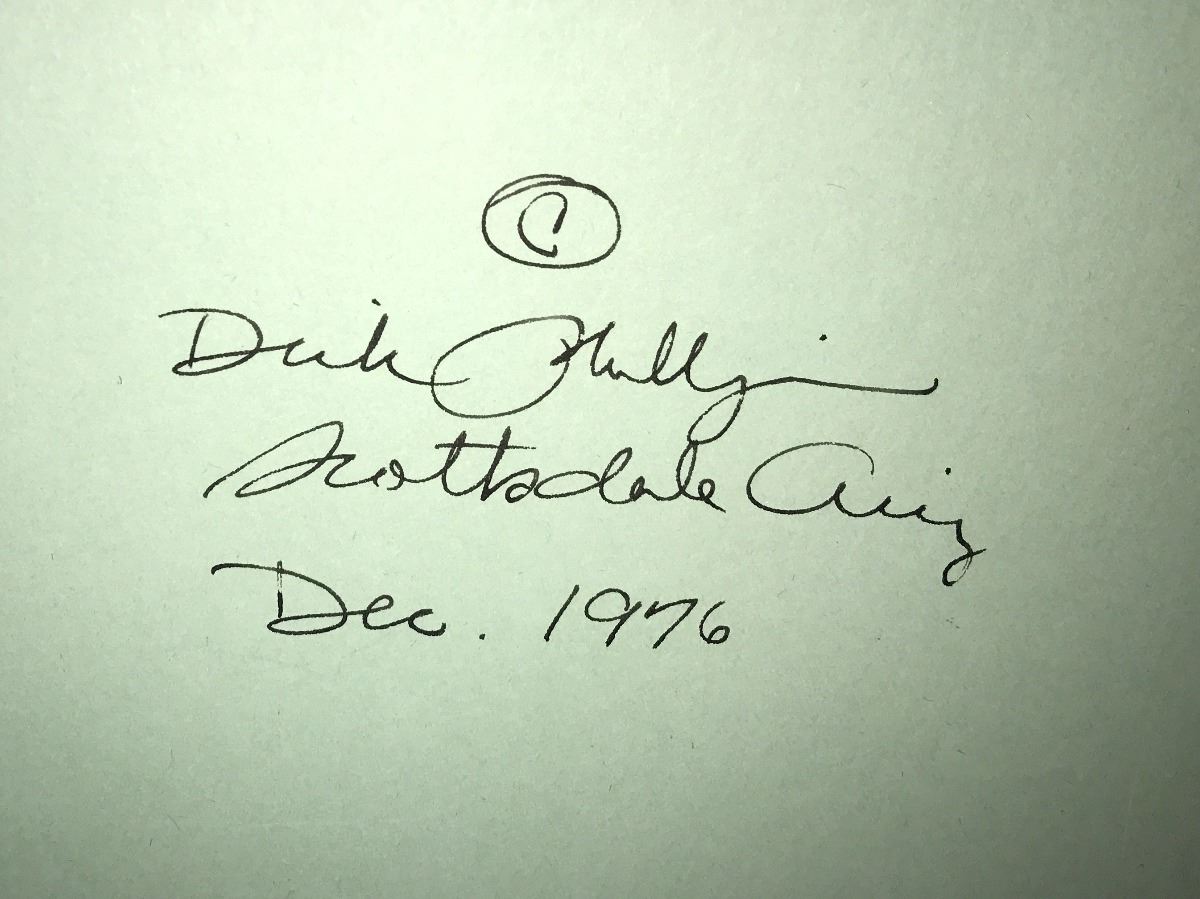 ©
Dick Phillips
Scottsdale Ariz
Dec. 1976